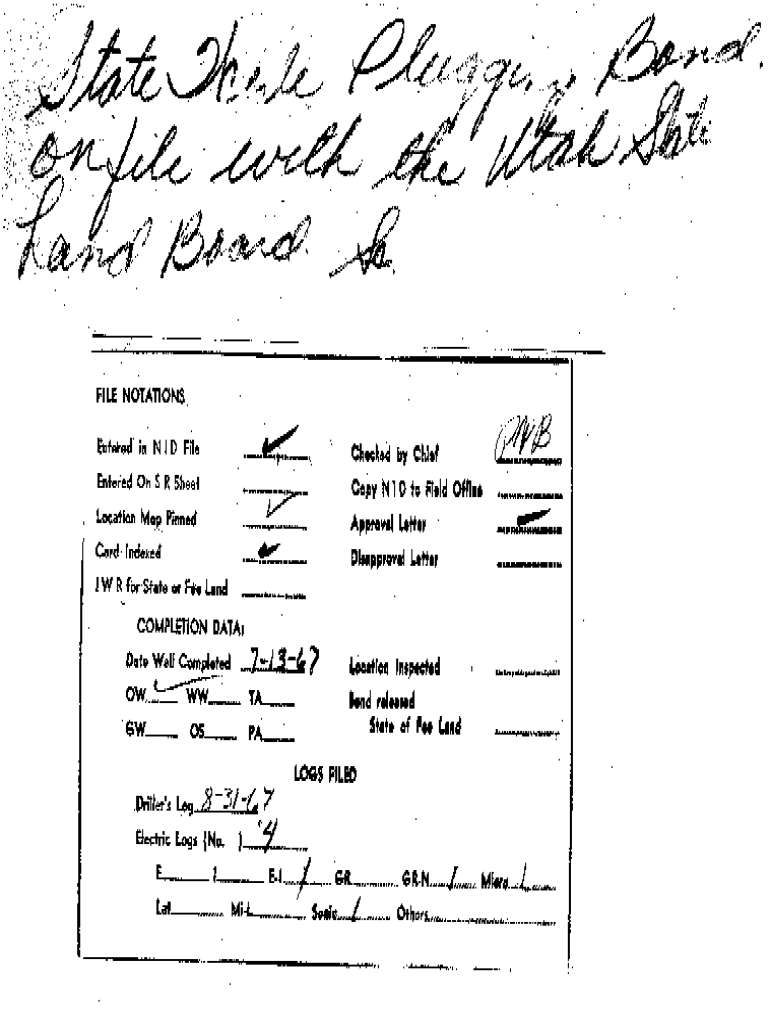 State Wide Plugging Bond.
on file with the Utah State
Land Board.
FILE NOTATIONS
Entered in NID File ✓ Checked by Chief PMB
Entered On S R Sheet Copy NID to Field Office
Location Map Pinned ✓ Approval Letter ✓
Card Indexed ✓ Disapproval Letter
I W R for State or Fee Land
COMPLETION DATA:
Date Well Completed 7-13-67 Location Inspected
OW ✓ WW TA Bond released
GW OS PA State of Fee Land
LOGS FILED
Driller's Log 8-31-67
Electric Logs (No. ) 4
E I E-I / GR GR-N / Micro /
Lat Mi-L Sonic / Others